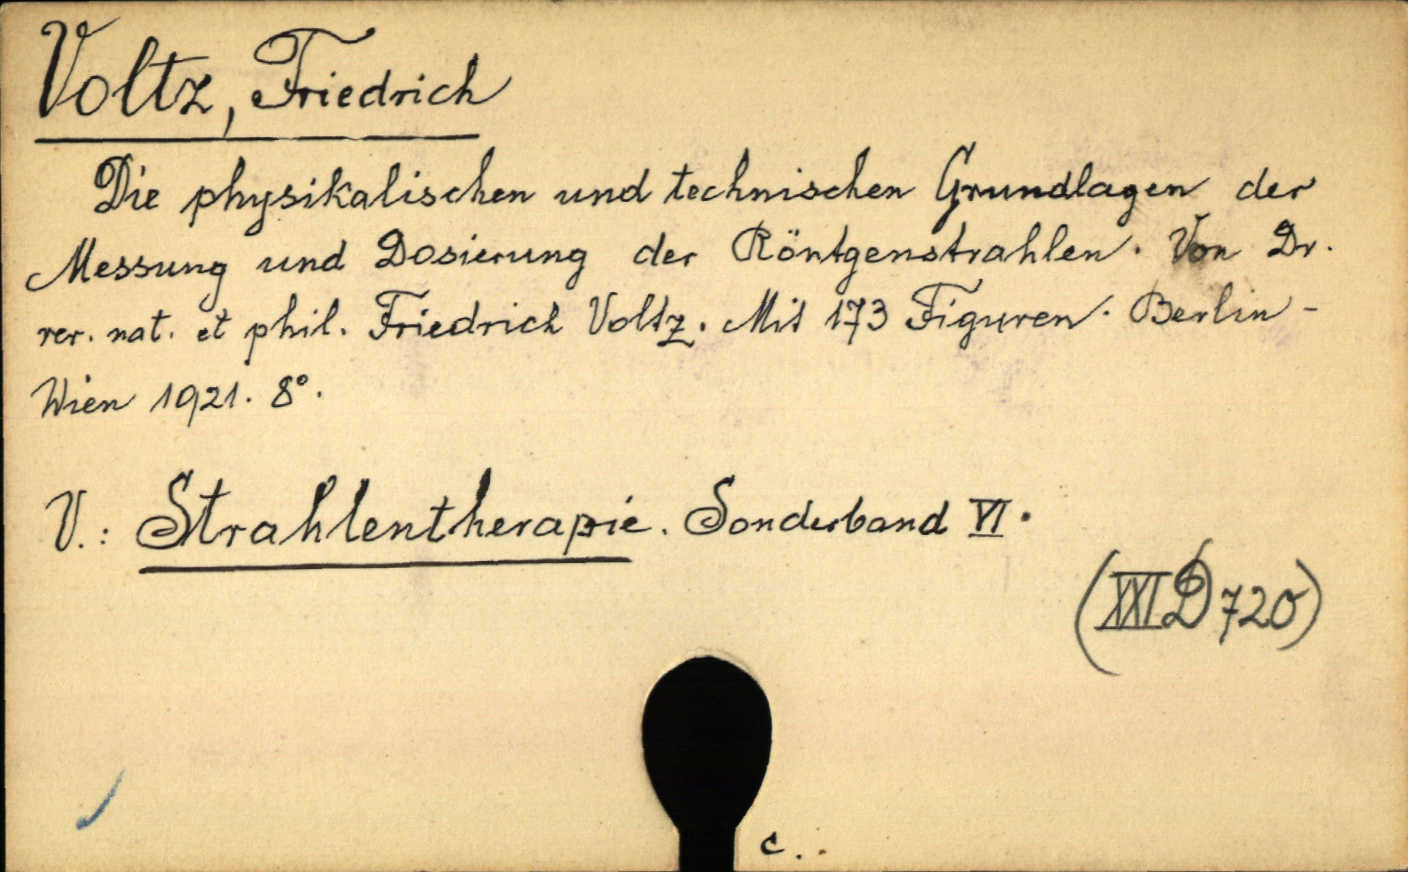 Voltz, Friedrich
Die physikalischen und technischen Grundlagen der
Messung und Dosierung der Röntgenstrahlen. Von Dr.
rer. nat. et phil. Friedrich Voltz. Mit 173 Figuren. Berlin-
Wien 1921. 8°.
V.: Strahlentherapie. Sonderband VI.
(XXI D 720)
c.